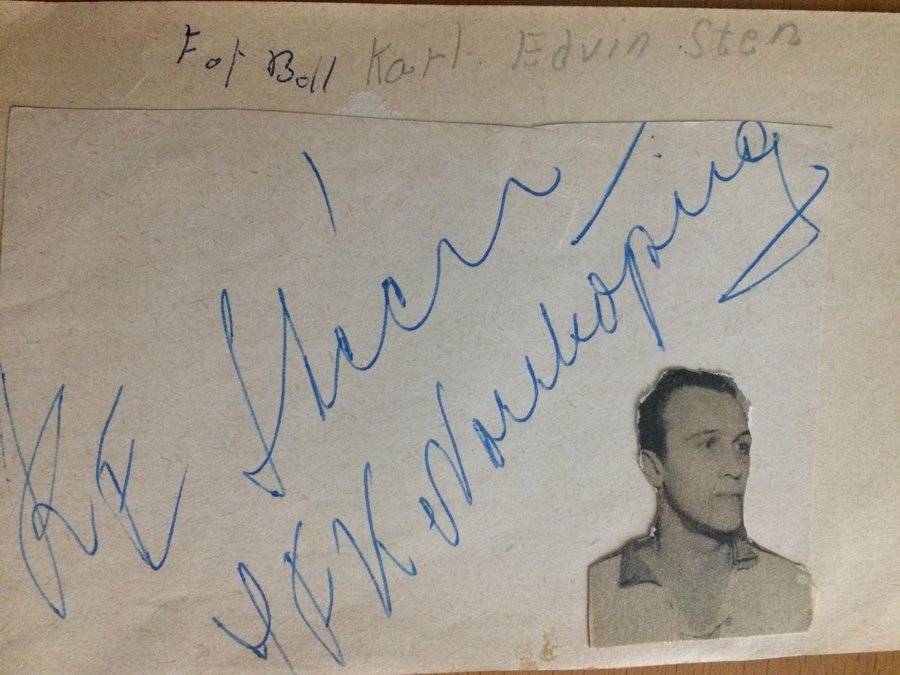 Fot Boll Karl. Edvin Sten
KE Sten
IFK Norrköping